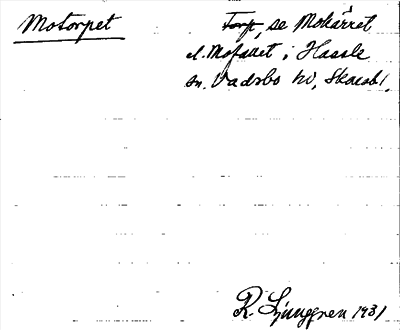 Motorpet
Torp, se Mokärret
el. Mofallet i Hassle
sn. Vadsbo hd, Skarab.
R. Ljunggren 1931